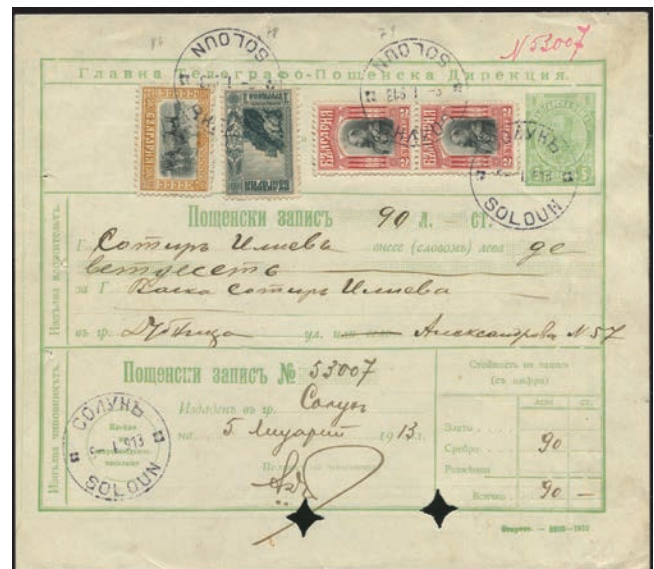 N 53007
Главна Телеграфо-Пощенска Дирекция.
SOLOUN
SOLOUN
СОЛУНЪ
SOLOUN
БЪЛГАРИЯ
БЪЛГАРИЯ
БЪЛГАРИЯ
БЪЛГАРИЯ
Пощенски записъ 90 л. — ст.
Г. Сотиръ Илиевъ внесе (словомъ) лева де
ветдесеть
за Г. Васка Сотиръ Илиева
въ гр. Дубница ул. Александрова N 57
Пощенски записъ № 53007
Издаденъ въ гр. Солунъ
на 5 Януарий 1913 г.
Стойность на записа
(съ цифри)
лева ст.
Злато
Сребро 90
Размѣнни
Всичко 90 —
СОЛУНЪ
5.1.913
SOLOUN